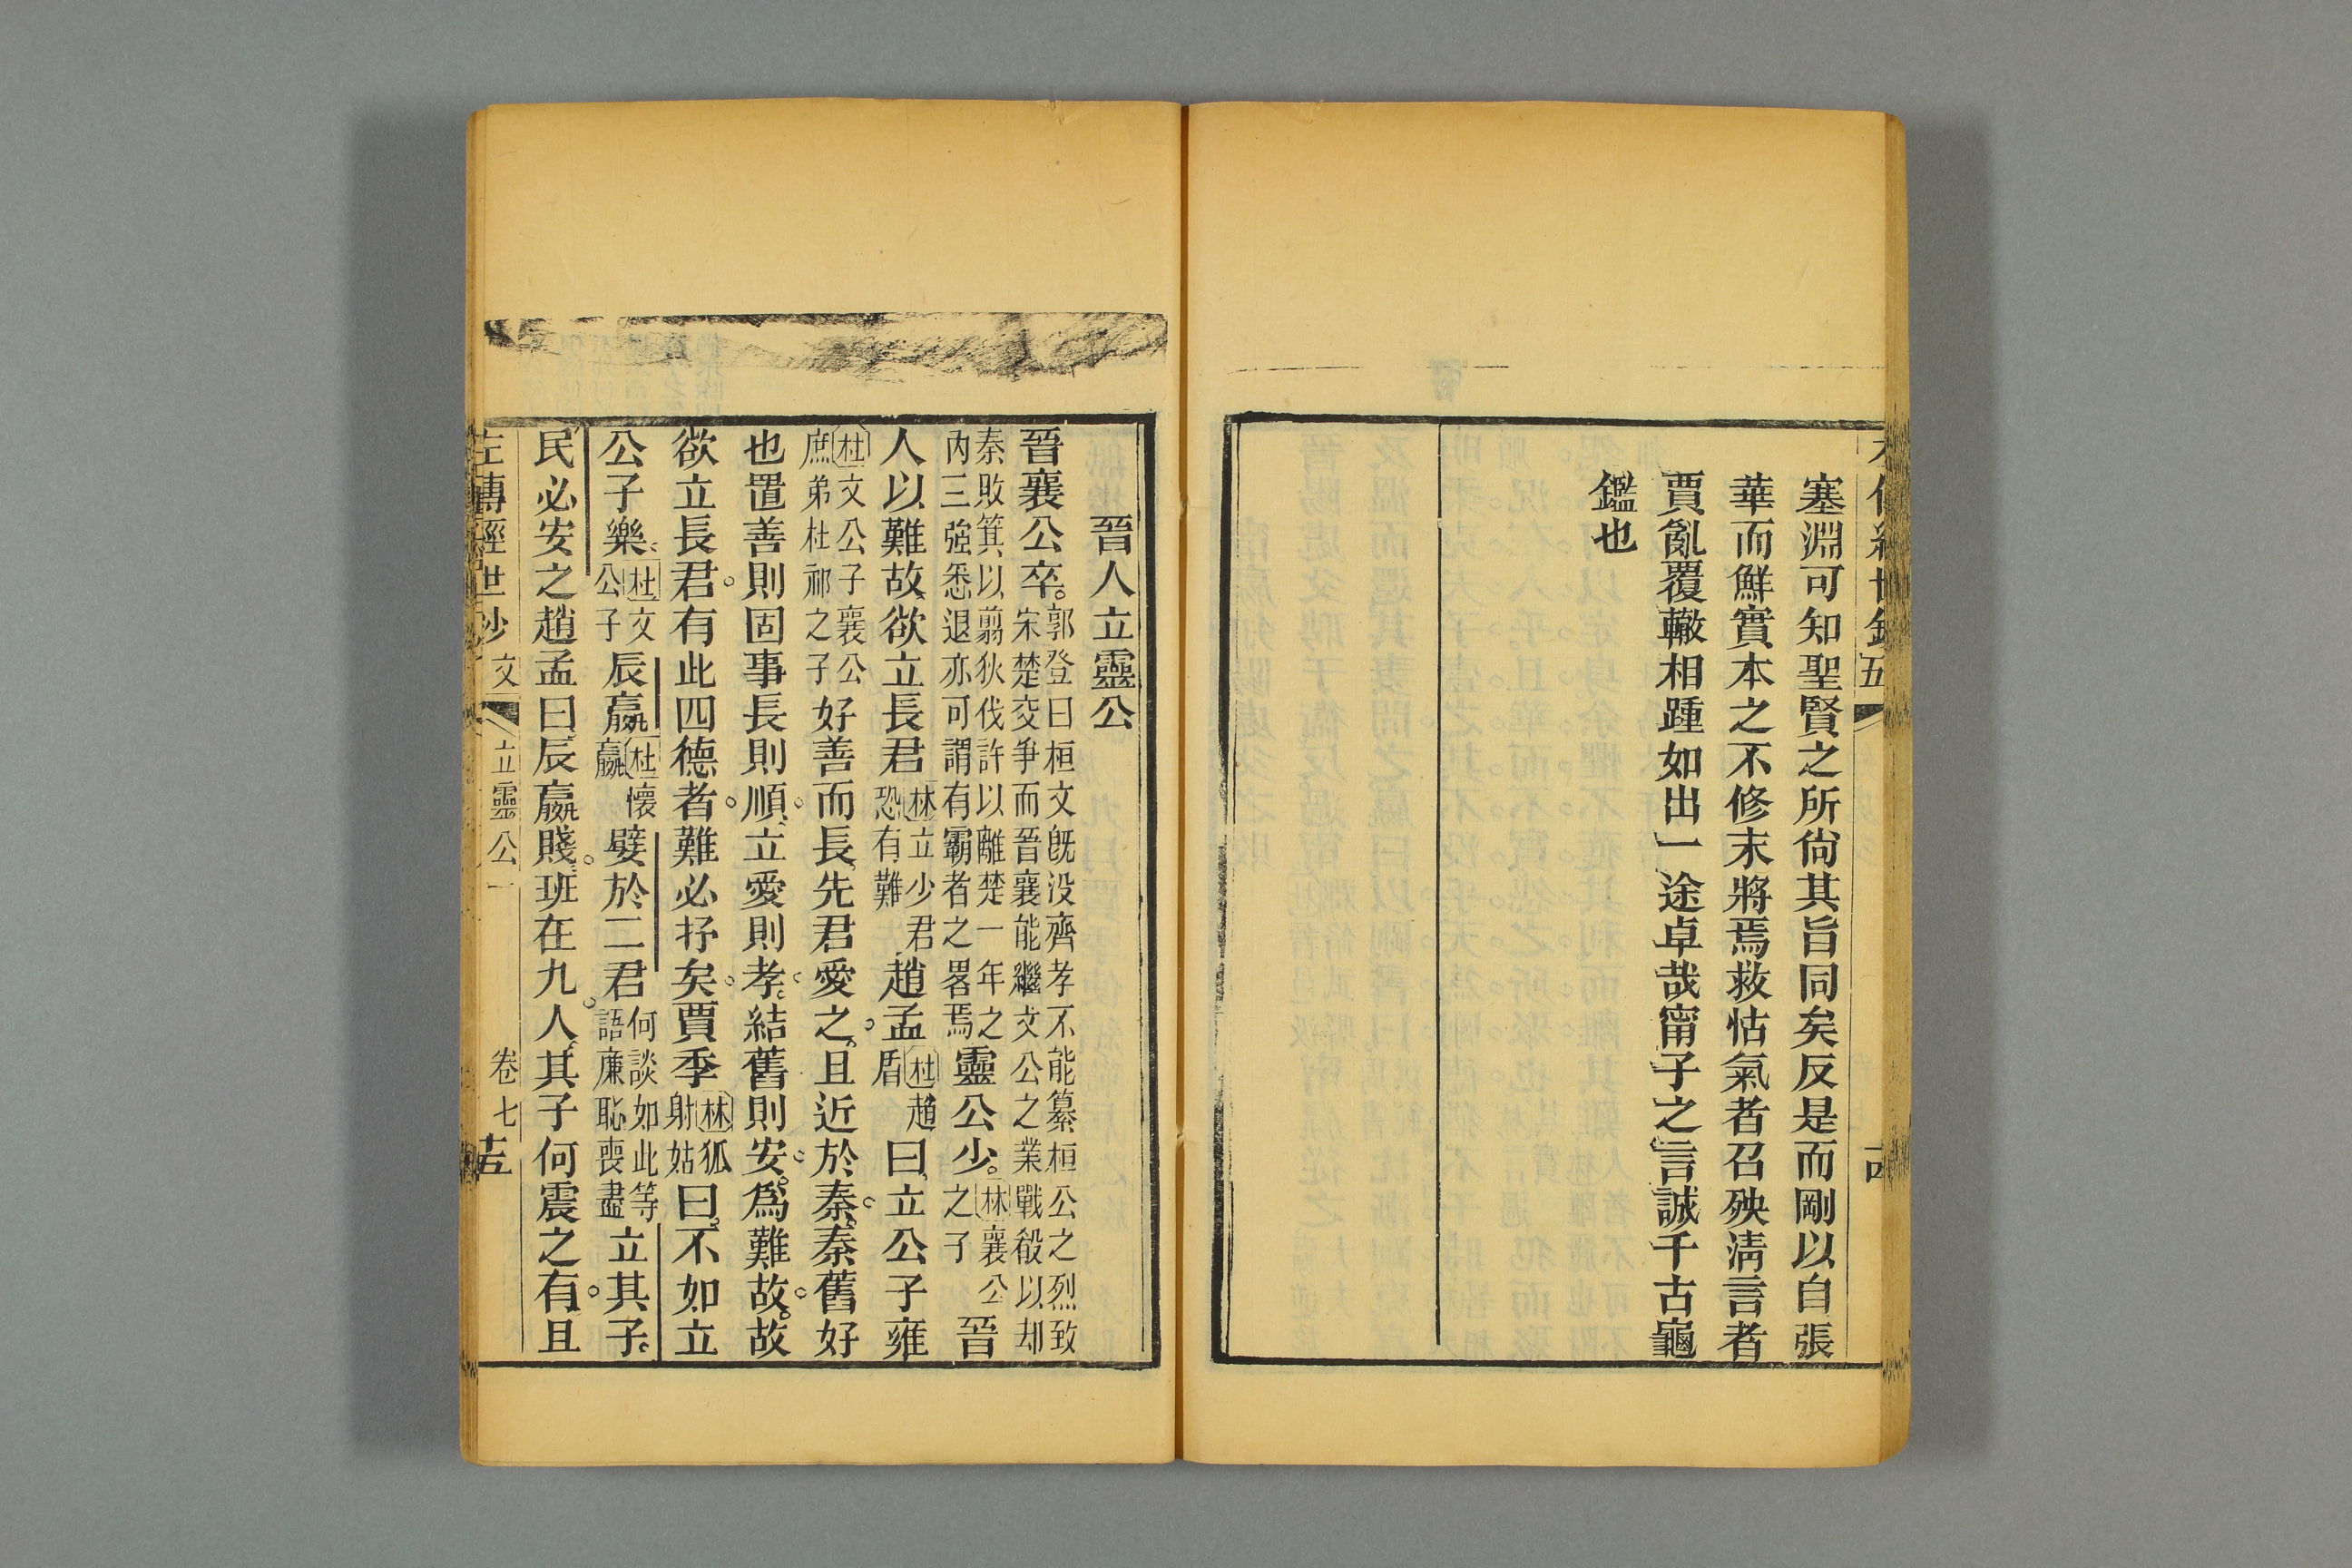 塞淵可知聖賢之所尙其旨同矣反是而剛以自張
華而鮮實本之不修末將焉救怙氣者召殃淸言者
賈亂覆轍相踵如出一途卓哉甯子之言誠千古龜
鑑也
晉人立靈公
晉襄公卒。郭登曰桓文旣没齊孝不能纂桓公之烈致宋楚交爭而晉襄能繼文公之業戰殽以却
秦敗箕以翦狄伐許以離楚一年之內三強悉退亦可謂有霸者之畧焉靈公少。林襄公之子晉
人以難故欲立長君林立少君恐有難趙孟杜趙盾曰立公子雍
杜文公子襄公庶弟杜祁之子好善而長先君愛之且近於秦秦舊好
也置善則固事長則順立愛則孝結舊則安爲難故故
欲立長君有此四德者難必抒矣賈季林狐射姑曰不如立
公子樂杜文公子辰嬴杜懷嬴嬖於二君何談如此等語廉恥喪盡立其子
民必安之趙孟曰辰嬴賤班在九人其子何震之有且
左傳經世鈔 文 立靈公一 卷七 十五